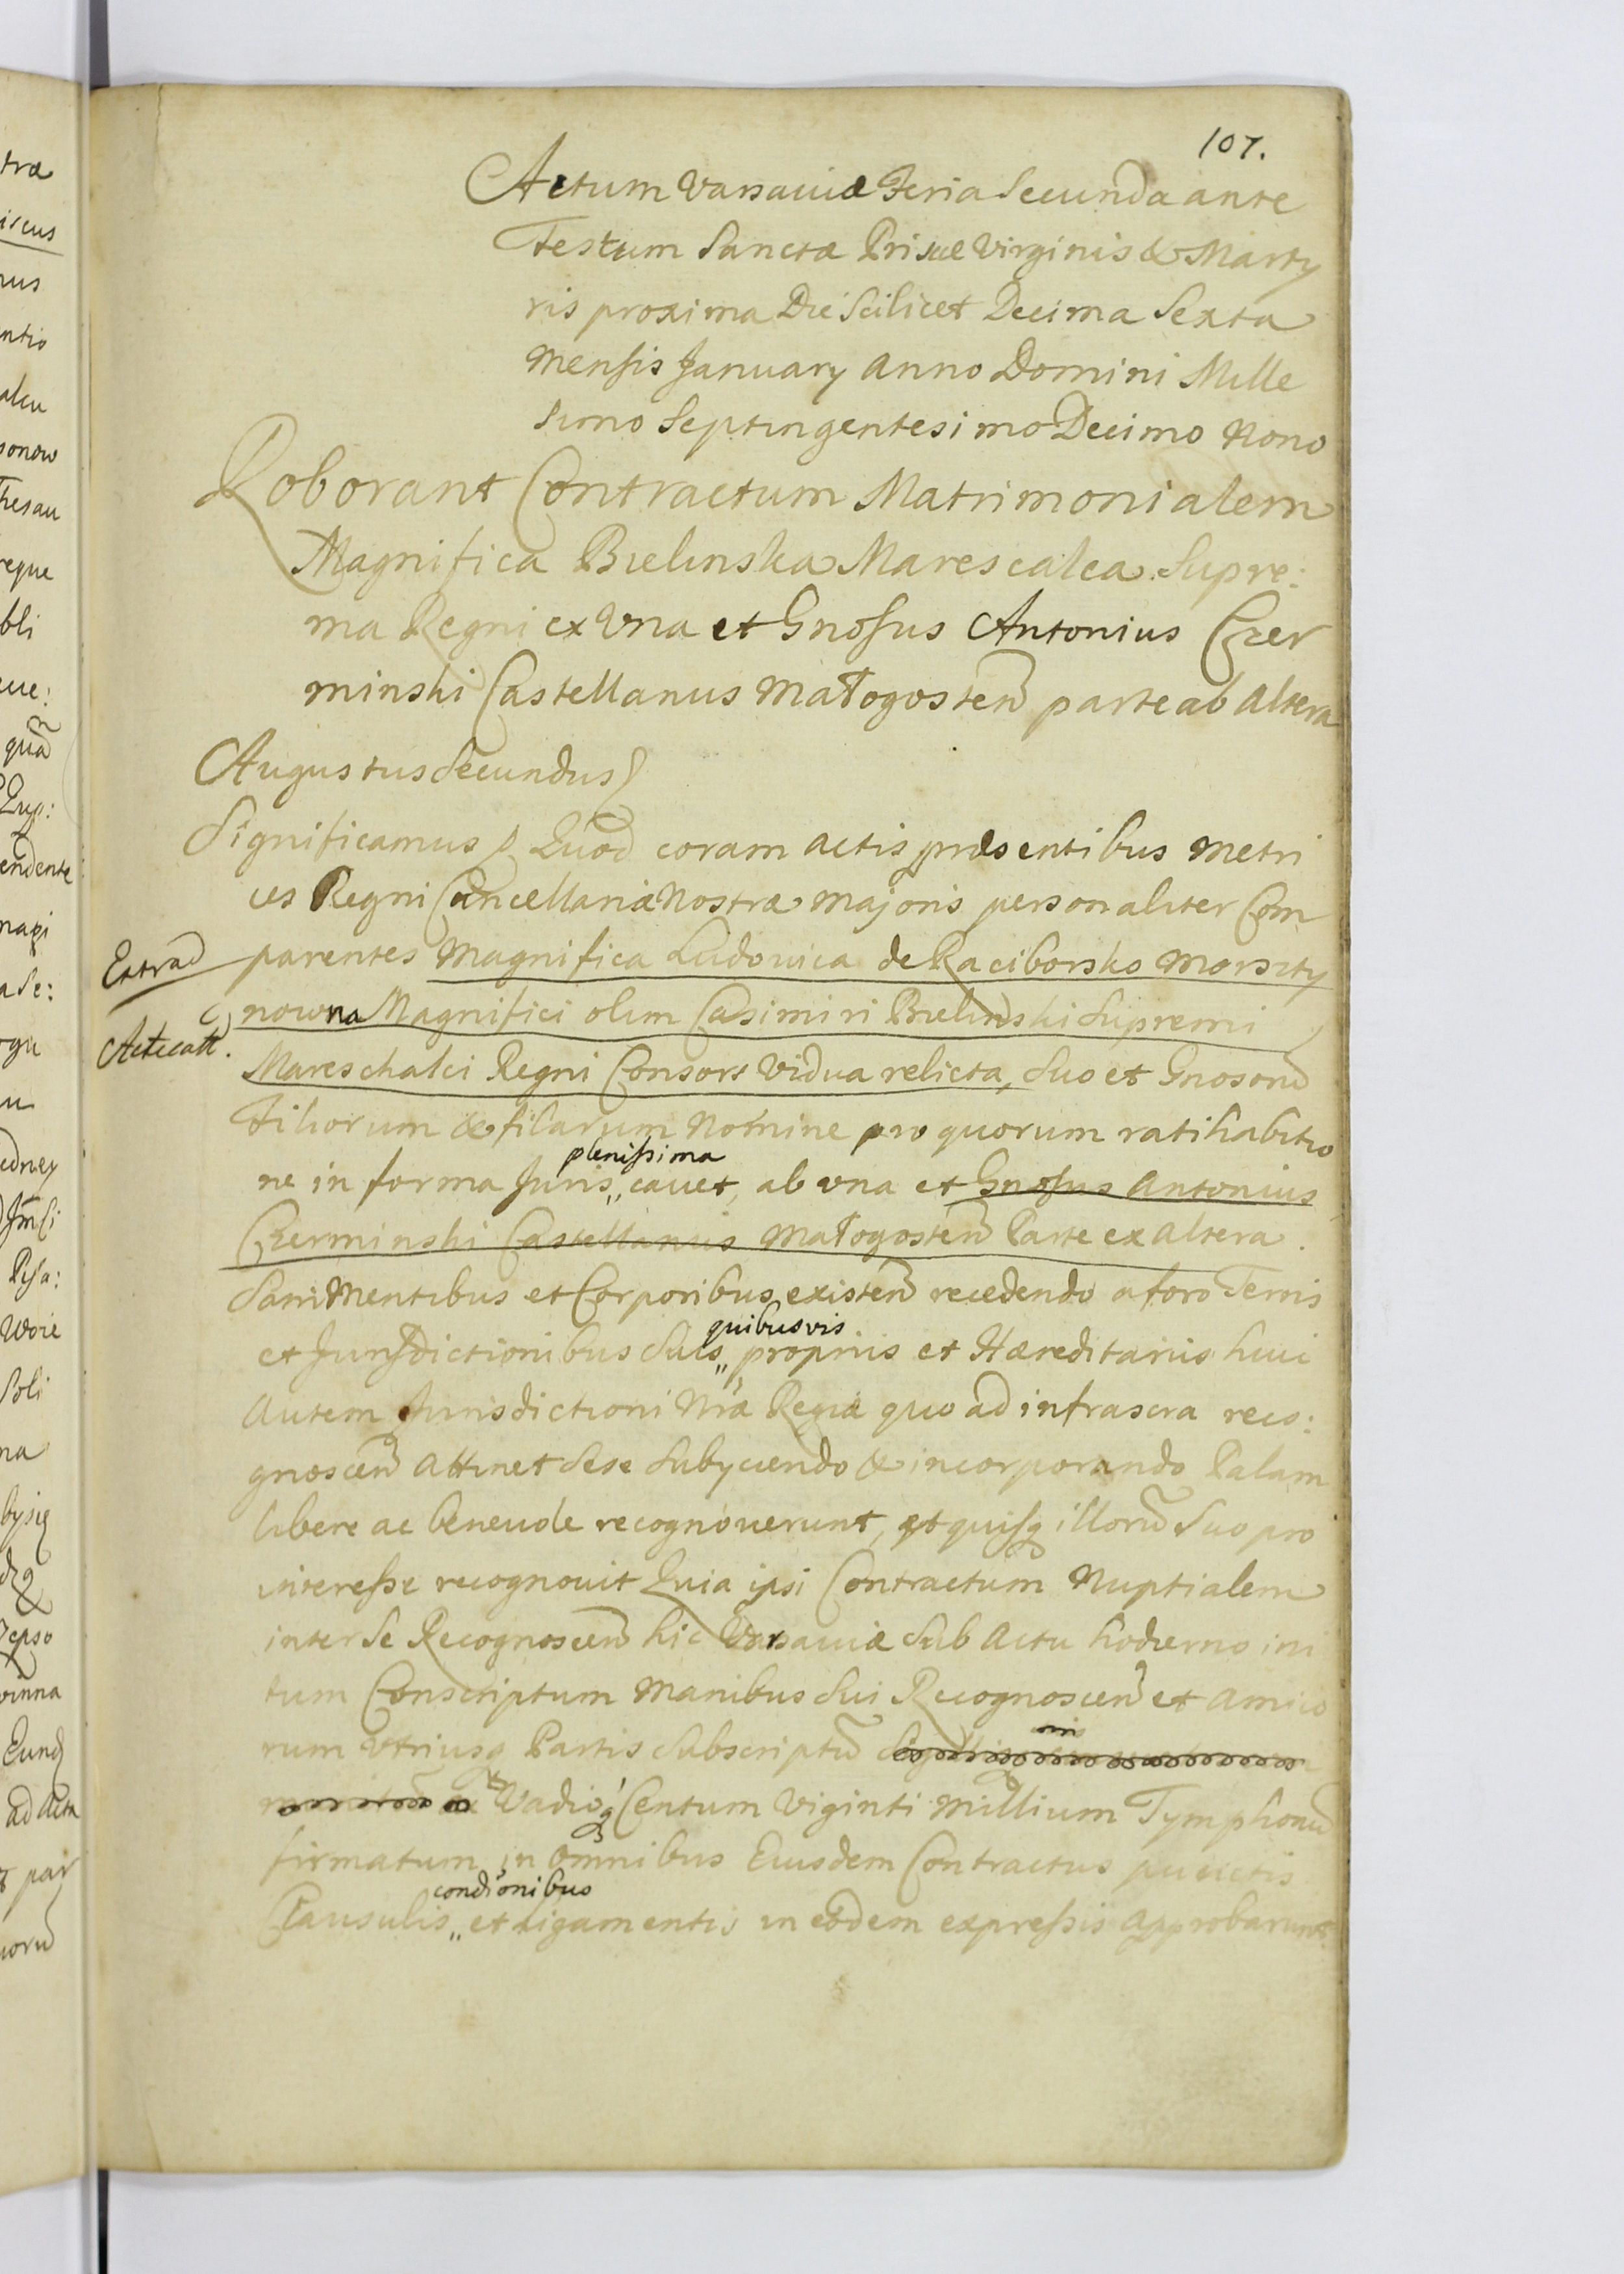 107.
Actum Varsaviæ Feria Secunda ante
Festum Sanctæ Priscæ Virginis & Marty
ris proxima Die Scilicet Decima Sexta
Mensis January Anno Domini Mille
simo Septingentesimo Decimo Nono
Roborant Contractum Matrimonialem
Magnifica Bielinska Marescalca Supre:
ma Regni ex Vna et Gnosus Antonius Czer
minski Castellanus Małogosten parte ab Altera
Augustus Secundus
Significamus Quod coram Actis præsentibus Metri
ces Regni Cancellariæ Nostræ Majoris personaliter Com
Extrad parentes Magnifica Ludovica de Raciborsko Morszty
nowna Magnifici olim Casimiri Bielinski Supremi
Acticatt.
Mareschalci Regni Consors Vidua relicta, Suo et Gnosorũ
Filiorum & filiarum Nomine pro quorum ratihabitio
plenissima
ne in forma Juris,, cavet, ab vna et Gnosus Antonius
Czerminski Castellanus Małogosten Parte ex Altera.
Sani Mentibus et Corporibus existen recedendo a foro Terris
quibusvis
et Jurisdictionibus Suis,, propriis et Hæreditariis huic
Autem Jurisdictioni Nræ Regiæ quo ad infrascra reco:
gnoscen Attinet Sese Subyciendo & incorporando Palam
libere ac benevole recognoverunt, et quisq illorũ Suo pro
interesse recognovit Quia ipsi Contractum Nuptialem
inter Se Recognoscen hic Varsaviæ Sub Actu hodierno ini
tum Conscriptum Manibus Sui Recognoscen et Amico
rum Vtriusq Partis Subscriptũ
Vadioq Centum Viginti Millium Tymphorũ
firmatum in Omnibus Eiusdem Contractus punctis
condionibus
Clausulis,, et Ligamentis in eodem expressis Approbarunt.